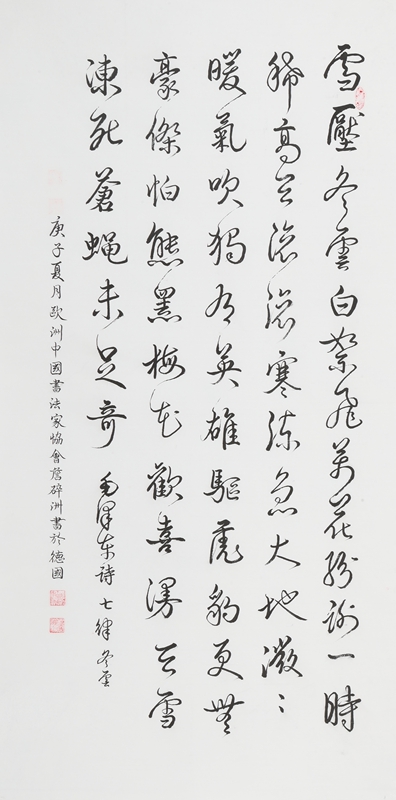 雪壓冬雲白絮飛萬花紛謝一時
稀高天滚滚寒流急大地微〻
暖氣吹獨有英雄驅虎豹更無
豪傑怕熊黑梅花歡喜漫天雪
涷死蒼蝇未足奇 毛澤东詩七律冬雲
庚子夏月欧洲中國書法家協會詹碎洲書於德國